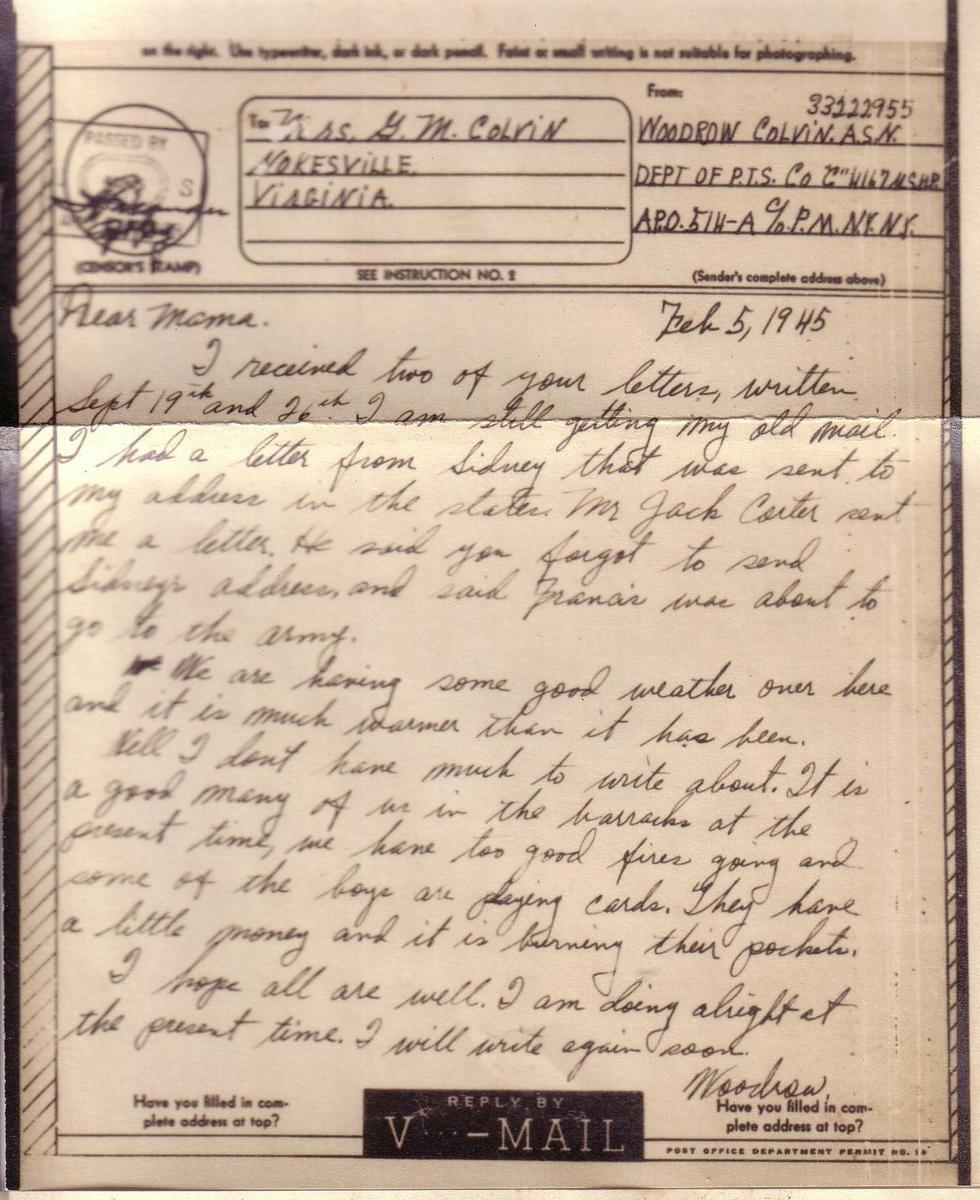 on the right. Use typewriter, dark ink, or dark pencil. Faint or small writing is not suitable for photographing.
PASSED BY
S
(CENSOR'S STAMP)
To: Mrs. G. M. COLVIN
NOKESVILLE.
VIRGINIA.
SEE INSTRUCTION NO. 2
From:
33222955
WOODROW COLVIN. A.S.N.
DEPT OF P.T.S. Co "C" 4167 U.S.H.P.
A.P.O. 514-A c/o P.M. N.Y. N.Y.
(Sender's complete address above)
Dear Mama. Feb 5, 1945
I received two of your letters, written
Sept 19th and 26th. I am still getting my old mail.
I had a letter from Sidney that was sent to
my address in the states. Mr Jack Corter sent
me a letter. He said you forgot to send
Sidneys address, and said Francis was about to
go to the army.
We are having some good weather over here
and it is much warmer than it has been.
Well I don't have much to write about. It is
a good many of us in the barracks at the
present time, we have too good fires going and
some of the boys are playing cards. They have
a little money and it is burning their pockets.
I hope all are well. I am doing alright at
the present time. I will write again soon.
Woodrow,
Have you filled in com-
plete address at top?
REPLY BY
V -MAIL
Have you filled in com-
plete address at top?
POST OFFICE DEPARTMENT PERMIT NO.